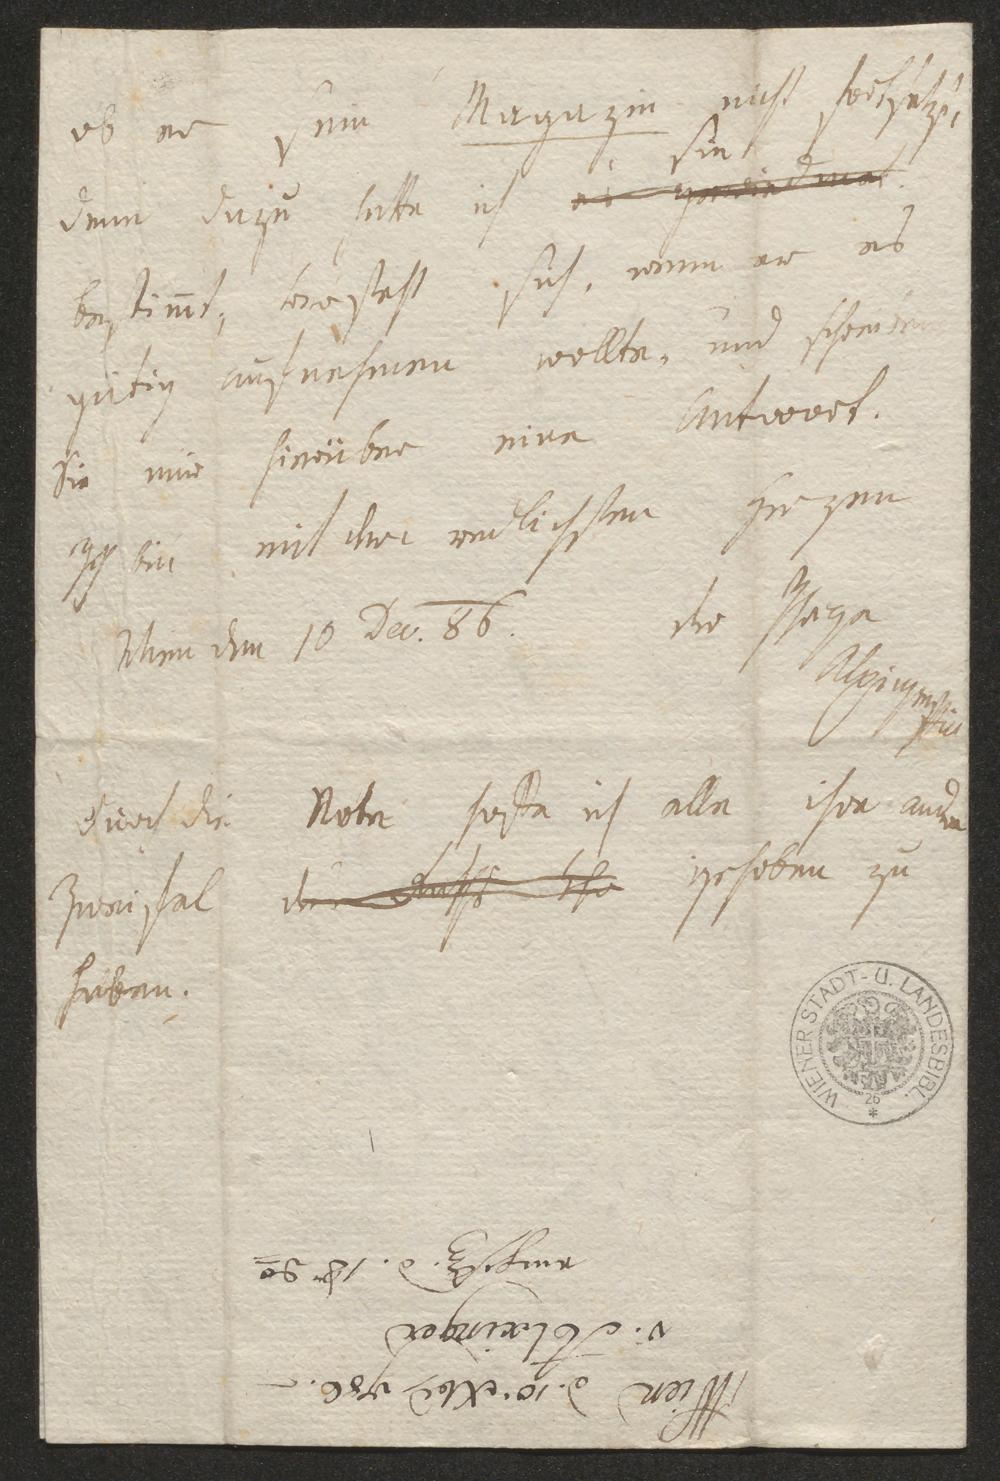 ob er sein Magazin nicht fortsetze,
denn dazu hatte ich
sie
bestimmt, versteht sich, wenn er es
gütig aufnehmen wollte, und schreiben
Sie mir hierüber eine Antwort.
Ich bin mit dem redlichsten Herzen
Wien den 10 Dec. 86. der Ihrige
Alxinger
durch die Note hoffe ich alle ihre andern
Zweifel gehoben zu
haben.
WIENER STADT- U. LANDESBIBL.
26
Wien d. 10. 786.
v. Alxinger